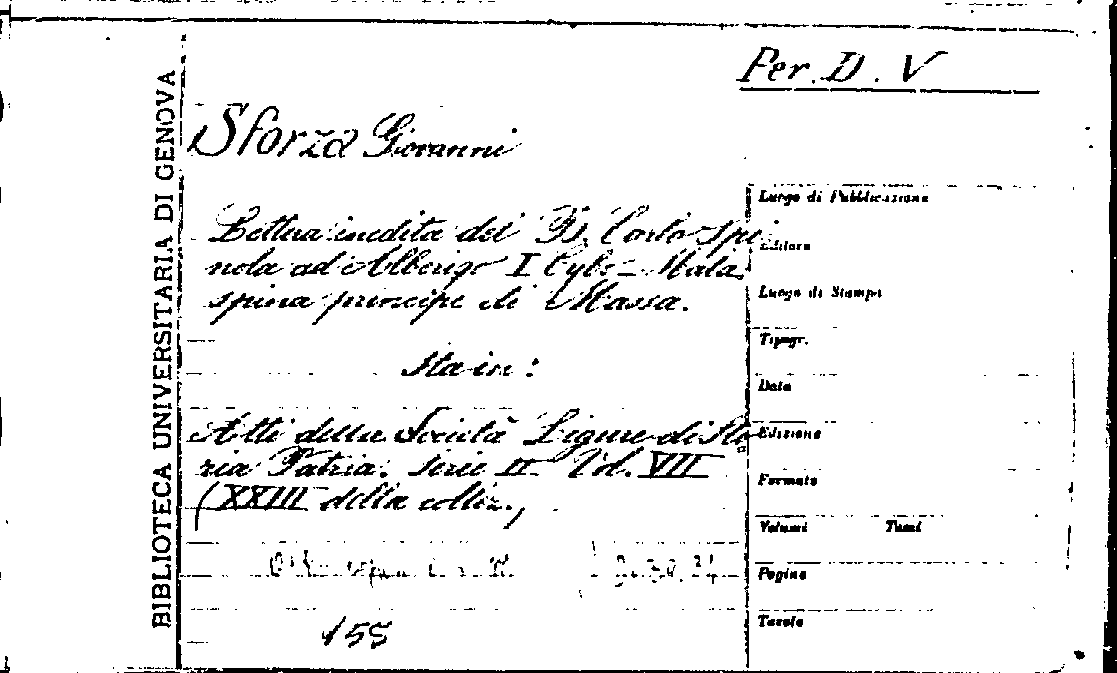 Per. D. V
BIBLIOTECA UNIVERSITARIA DI GENOVA
Sforza Giovanni
Lettera inedita del B. Carlo Spi
nola ad Alberigo I Cybo-Mala
spina principe di Massa.
Sta in:
Atti della Società Ligure di Sto
ria Patria. Serie II Vol. VII
(XXIII della collez.,
155
Luogo di Pubblicazione
Editore
Luogo di Stampa
Tipogr.
Data
Edizione
Formato
Volumi Tomi
Pagine
Tavole